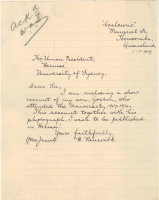 "Carlowrie"
Margaret St
Toowoomba
Queensland
The Union President,
Hermes,
University of Sydney.
Dear Sir,
I am enclosing a short
account of my son, Gordon, who
attended the University
The account together with his
photograph, I wish to be published
in Hermes.
Yours faithfully,